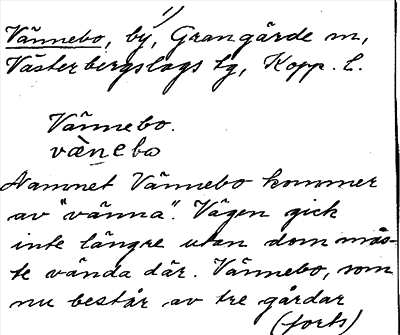 1)
Vännebo, by, Grangärde sn,
Västerbergslags tg, Kopp. l.
Vännebo.
væ̀nebω
Namnet Vännebo kommer
av "vänna". Vägen gick
inte längre utan dom mås-
te vända där. Vännebo, som
nu består av tre gårdar
(forts)